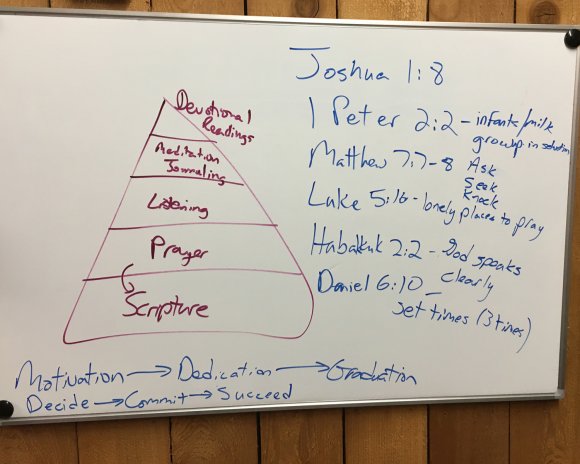 Devotional
Readings
Meditation
Journaling
Listening
Prayer
Scripture
Joshua 1:8
1 Peter 2:2 - infants/milk
grow up in salvation
Matthew 7:7-8 Ask
Seek
Knock
Luke 5:16 - lonely places to pray
Habakkuk 2:2 - God speaks
clearly
Daniel 6:10 -
set times (3 times)
Motivation → Dedication → Graduation
Decide → Commit → Succeed